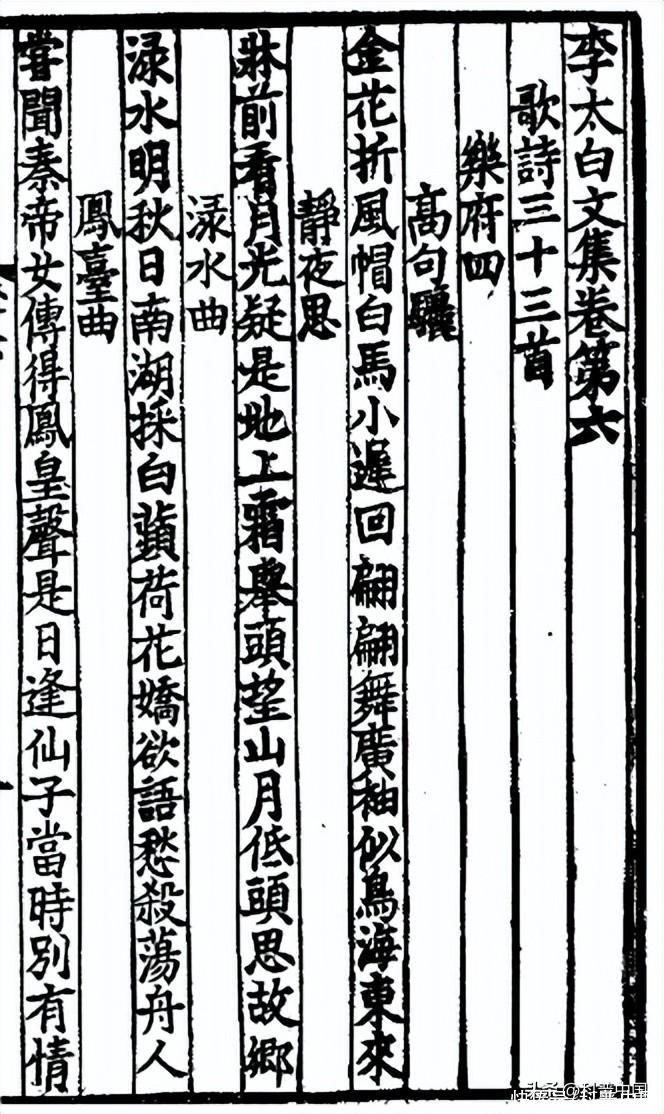 李太白文集卷第六
歌詩三十三首
樂府四
高句驪
金花折風帽白馬小遲回翩翩舞廣袖似鳥海東來
靜夜思
牀前看月光疑是地上霜舉頭望山月低頭思故鄉
淥水曲
淥水明秋日南湖採白蘋荷花嬌欲語愁殺蕩舟人
鳳臺曲
甞聞秦帝女傳得鳳皇聲是日逢仙子當時別有情